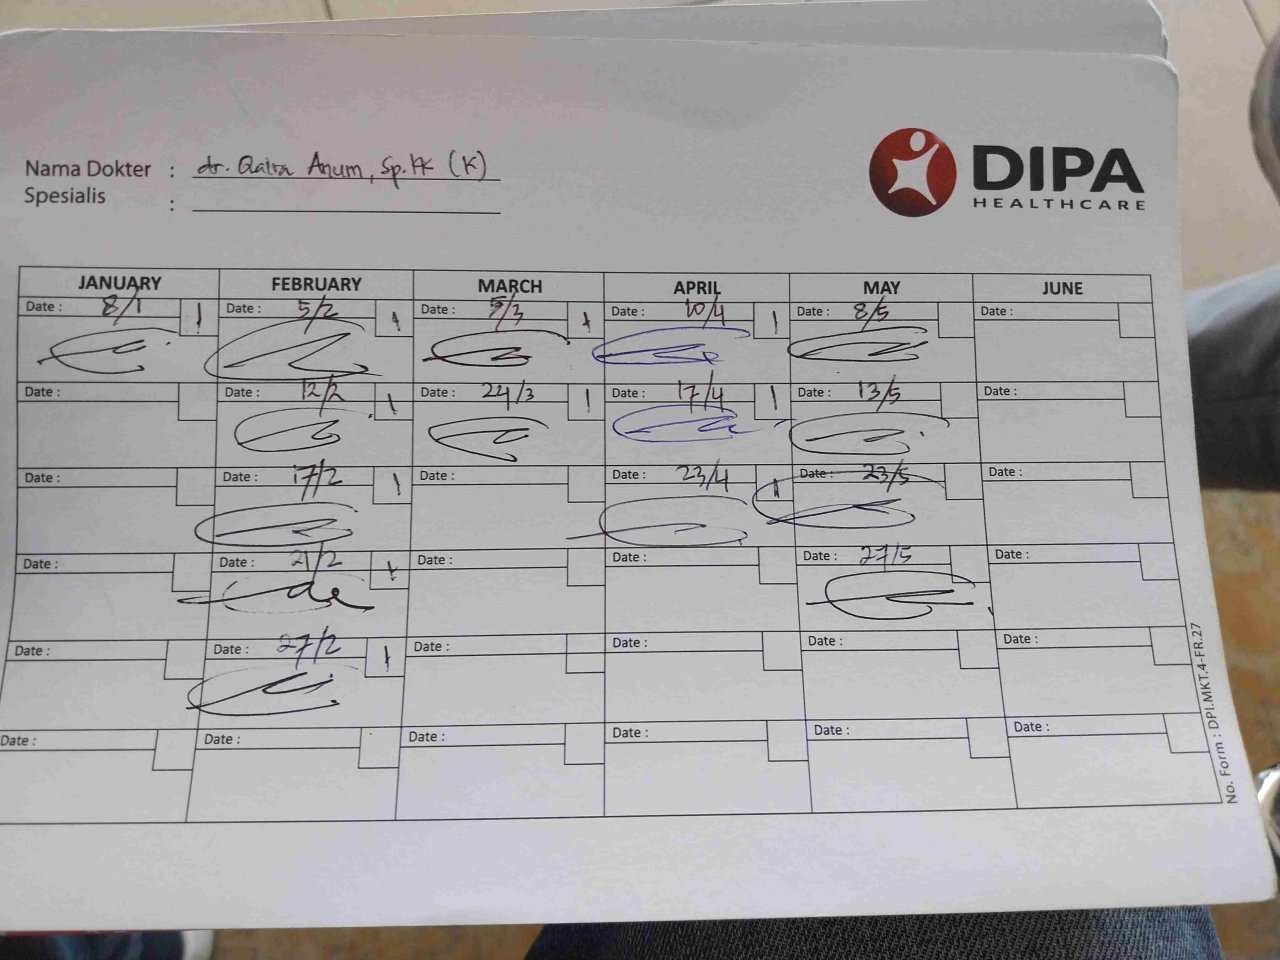 DIPA
HEALTHCARE
Nama Dokter : dr. Qaira Anum, Sp.KK (K)
Spesialis :
JANUARY FEBRUARY MARCH APRIL MAY JUNE
Date : 8/1 Date : 5/2 Date : 5/3 Date : 10/4 Date : 8/5 Date :
Date : Date : 12/2 Date : 24/3 Date : 17/4 Date : 13/5 Date :
Date : Date : 17/2 Date : Date : 23/4 Date : 23/5 Date :
Date : Date : 21/2 Date : Date : Date : 27/5 Date :
Date : Date : 27/2 Date : Date : Date : Date :
Date : Date : Date : Date : Date : Date :
No. Form : DPI.MKT.4-FR.27